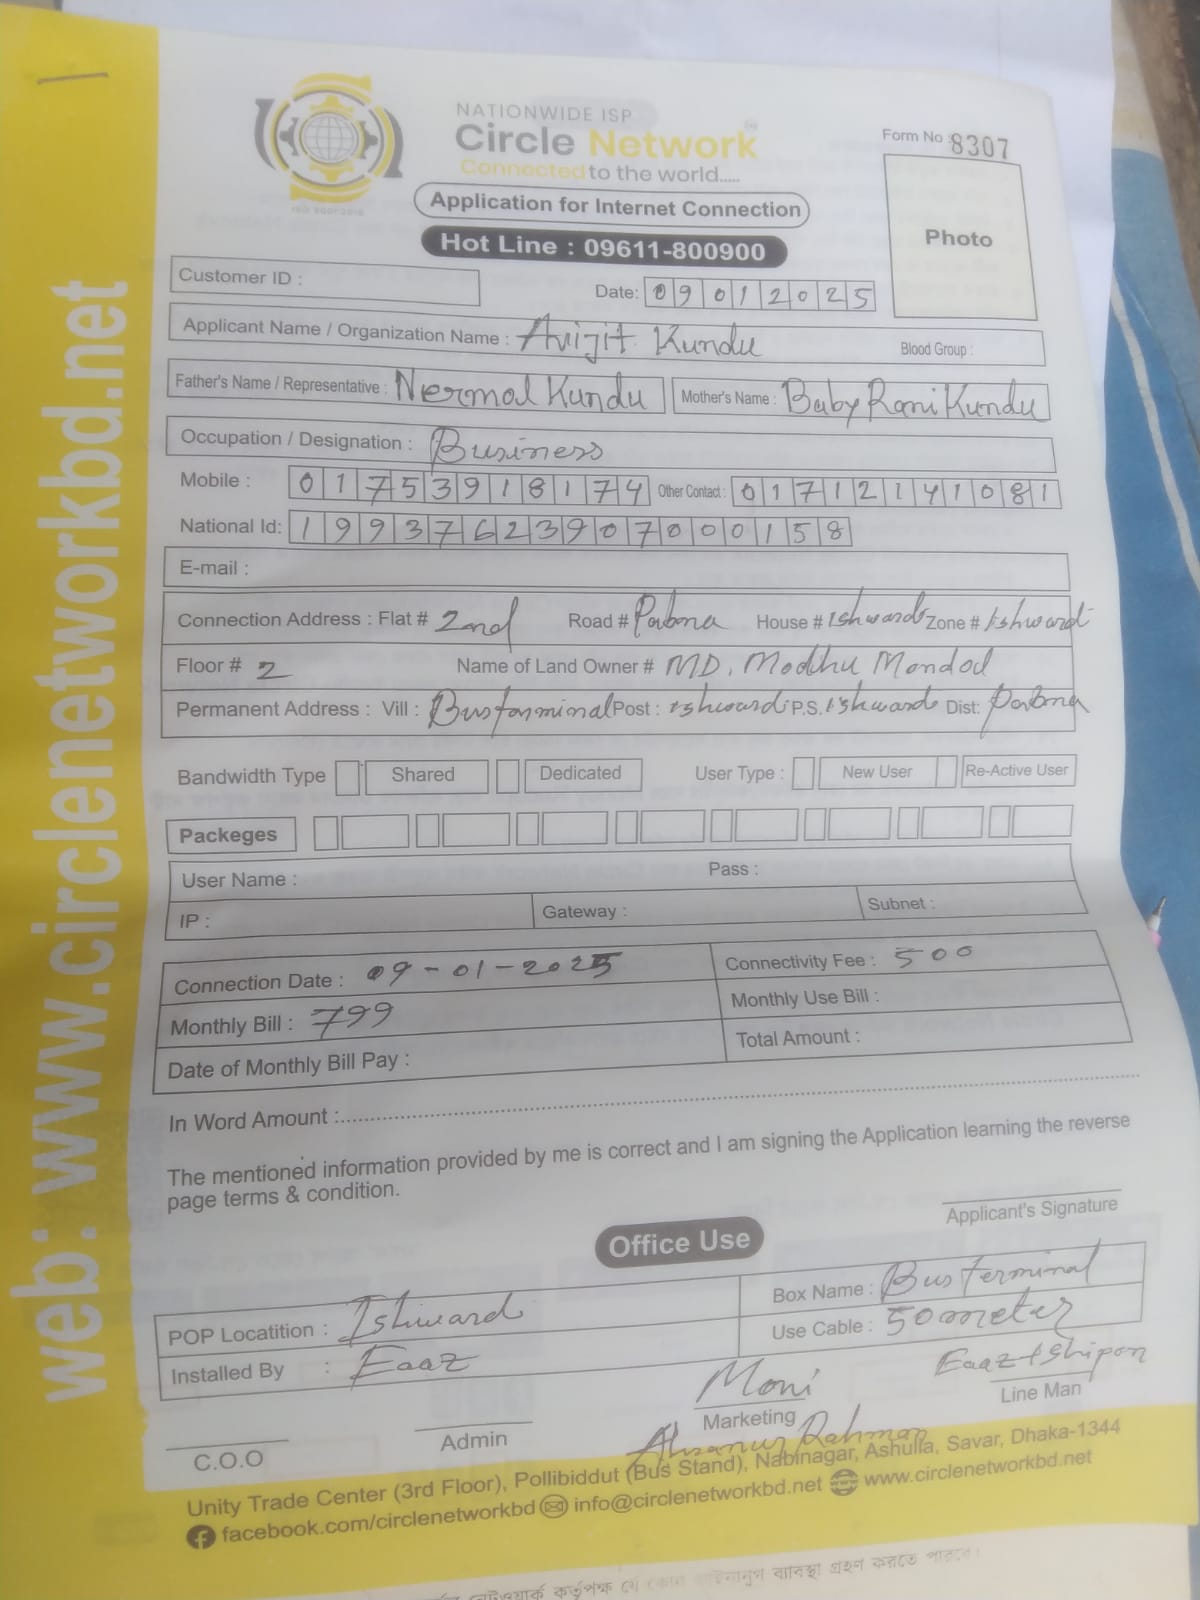 web: www.circlenetworkbd.net
NATIONWIDE ISP
Circle Network
Connected to the world.....
ISO 9001:2015
Form No 8307
Application for Internet Connection
Photo
Hot Line : 09611-800900
Customer ID :
Date: 09012025
Applicant Name / Organization Name : Avijit Kundu Blood Group :
Father's Name / Representative : Nermal Kundu Mother's Name : Baby Rani Kundu
Occupation / Designation : Business
Mobile : 01753918174 Other Contact : 01712141081
National Id: 19937623907000158
E-mail :
Connection Address : Flat # 2nd Road # Pabna House # Ishwardi Zone # Ishwardi
Floor # 2 Name of Land Owner # MD. Modhu Mondol
Permanent Address : Vill : Busterminal Post : Ishwardi P.S. Ishwardi Dist: Pabna
Bandwidth Type Shared Dedicated User Type : New User Re-Active User
Packeges
User Name : Pass :
IP : Gateway : Subnet :
Connection Date : 09-01-2025 Connectivity Fee : 500
Monthly Bill : 799 Monthly Use Bill :
Date of Monthly Bill Pay : Total Amount :
In Word Amount :
The mentioned information provided by me is correct and I am signing the Application learning the reverse
page terms & condition.
Applicant's Signature
Office Use
POP Locatition : Ishward Box Name : Bus terminal
Installed By : Eaaz Use Cable : 50 meter
Moni Eaaz + Shipon
C.O.O Admin Marketing Line Man
Ahsanur Rahman
Unity Trade Center (3rd Floor), Pollibiddut (Bus Stand), Nabinagar, Ashulia, Savar, Dhaka-1344
facebook.com/circlenetworkbd info@circlenetworkbd.net www.circlenetworkbd.net
কর্তৃপক্ষ যে কোন আইনানুগ ব্যাবস্থা গ্রহণ করতে পারবে।